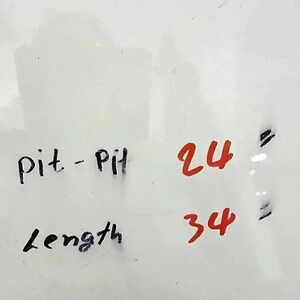 pit - pit 24"
Length 34"